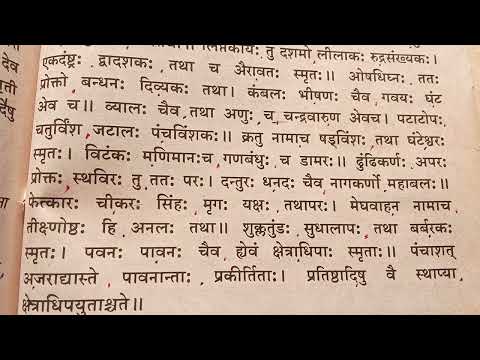 देव लिप्तकायः तु दशमो लीलाकः रुद्रसंख्यकः।
एकदंष्ट्रः द्वादशकः तथा च ऐरावतः स्मृतः।। ओषधिघ्नः ततः
प्रोक्तो बन्धनः दिव्यकः तथा। कंबलः भीषणः चैव गवयः घंट
एव च।। व्यालः चैव तथा अणुः च चन्द्रवारुण एवच। पटाटोपः
चतुर्विंश जटालः पंचविंशकः।। क्रतु नामाच षड्विंशः तथा घंटेश्वरः
स्मृतः। विटंकः मणिमानः च गणबंधुः च डामरः।। ढुंढिकर्णः अपरः
प्रोक्तः स्थविरः तु ततः परः। दन्तुरः धनदः चैव नागकर्णो महाबलः।।
फेत्कारः चीकरः सिंहः मृगः यक्षः तथापरः। मेघवाहन नामाच
तीक्ष्णोष्ठः हि अनलः तथा।। शुक्लतुंडः सुधालापः तथा बर्बरकः
स्मृतः। पवनः पावनः चैव ह्येवं क्षेत्राधिपाः स्मृताः।। पंचाशत्
अजराद्यास्ते पावनान्ताः प्रकीर्तिताः। प्रतिष्ठादिषु वै स्थाप्या
क्षेत्राधिपयुताश्चते।।